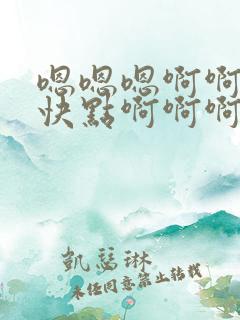 嗯嗯嗯啊啊
快點啊啊啊
凱瑟琳
未经同意禁止转载